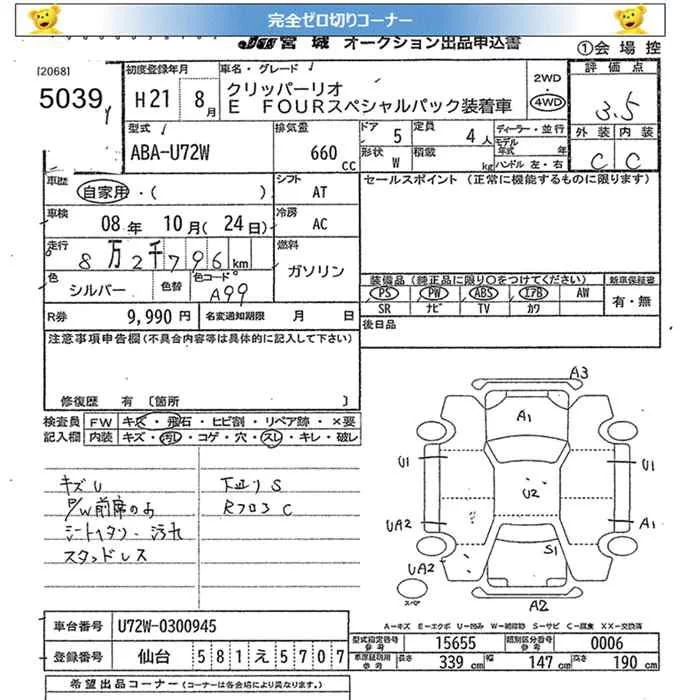 完全ゼロ切りコーナー
JU 宮城 オークション出品申込書
①会場控
[2068]
5039
初度登録年月
H21 8月
車名・グレード
クリッパーリオ
E FOURスペシャルパック装着車
2WD
・
4WD
評価点
3.5
外装 内装
C C
型式
ABA-U72W
排気量
660 CC
ドア 5
定員 4人
形状 W
積載 kg
ディーラー・並行
モデル年式 年
ハンドル 左・右
車歴
自家用・( )
シフト AT
車検
08年 10月(24日)
冷房 AC
走行
8万2千796km
燃料
ガソリン
色
シルバー
色替
色コード
A99
R券 9,990円
名変通知期限 月 日
セールスポイント (正常に機能するものに限ります)
装備品 (純正品に限り○をつけてください)
新車保証書
PS PW ABS エアB AW
SR ナビ TV カワ
有・無
後日品
注意事項申告欄(不具合内容等は具体的に記入して下さい)
修復歴 有 〔箇所 〕
検査員記入欄
FW キズ・飛石・ヒビ割・リペア跡・×要
内装 キズ・汚れ・コゲ・穴・スレ・キレ・破レ
キズU
P/W前席のみ
シートヘタリ・汚れ
スタッドレス
下廻りS
RフロアC
A3
A1
U1
U1
U2
UA2
A1
S1
UA2
A2
スペア
A-キズ E-エクボ U-凹み W-補修跡 S-サビ C-腐食 XX-交換済
車台番号 U72W-0300945
登録番号 仙台 581え5707
型式指定番号参考 15655
類別区分番号参考 0006
車庫証明用参考 長さ 339cm 幅 147cm 高さ 190cm
希望出品コーナー (コーナーは各会場により異なります。)